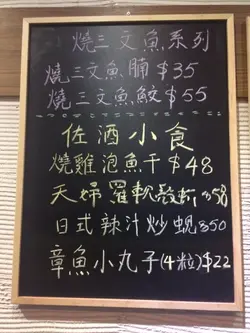 燒三文魚系列
燒三文魚腩 $35
燒三文魚鮫 $55
佐酒小食
燒雞泡魚干 $48
天婦羅軟殼蟹 $58
日式辣汁炒蜆 $50
章魚小丸子(4粒) $22